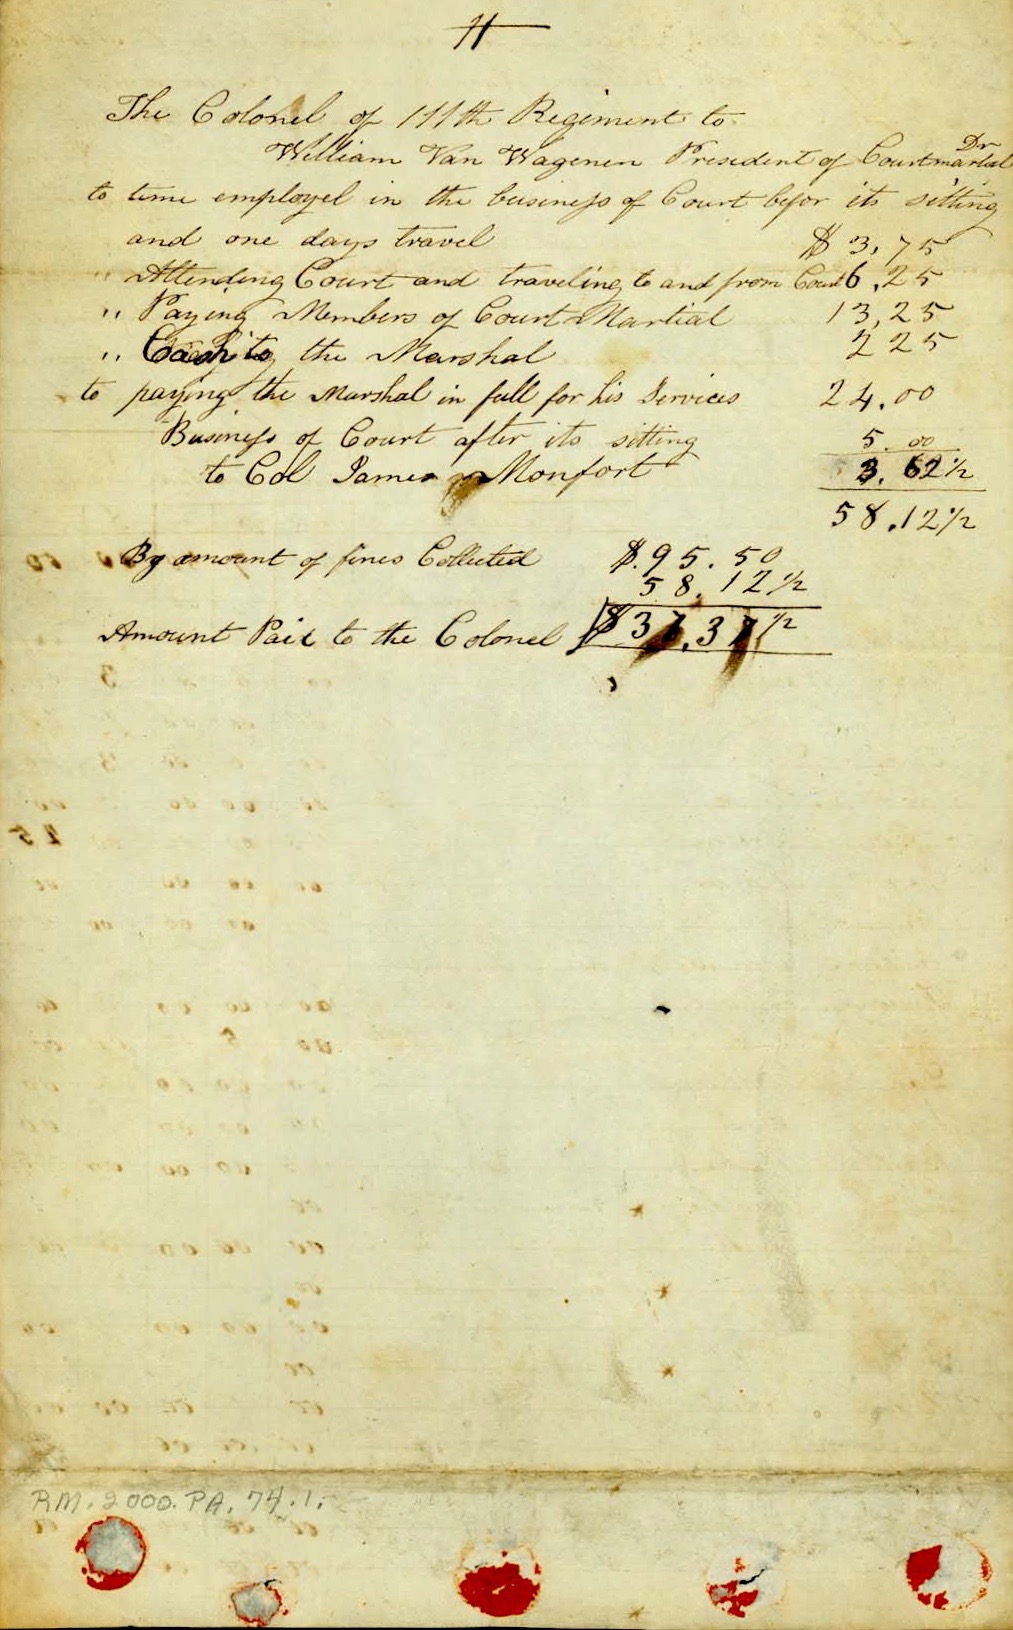 11
The Colonel of 111th Regiment to
Dr
William Van Wagenen President of Court martial
to time employel in the business of Court befor its sitting
and one days travel $ 3,75
" Attending Court and traveling to and from Court 6,25
" Paying Members of Court Martial 13,25
" Cash to the Marshal 2 25
to paying the Marshal in full for his Services 24.00
Business of Court after its sitting 5.00
to Col James Monfort 3.62½
58.12½
By amount of fines Collected $.95.50
58.12½
Amount Paid to the Colonel $37.37½
25
RM.2000.PA.74.1.